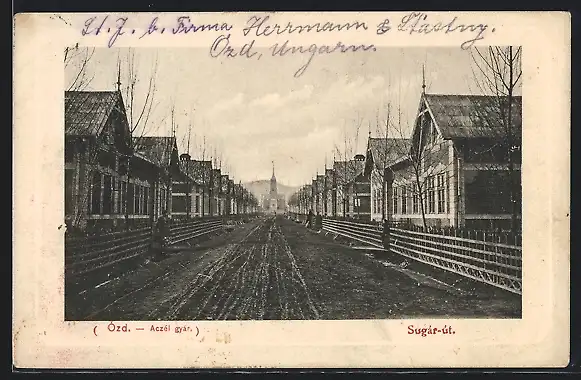 St. J. b. Firma Herrmann & Stastny.
Ózd, Ungarn.
( Ózd. — Aczél gyár. )
Sugár-út.